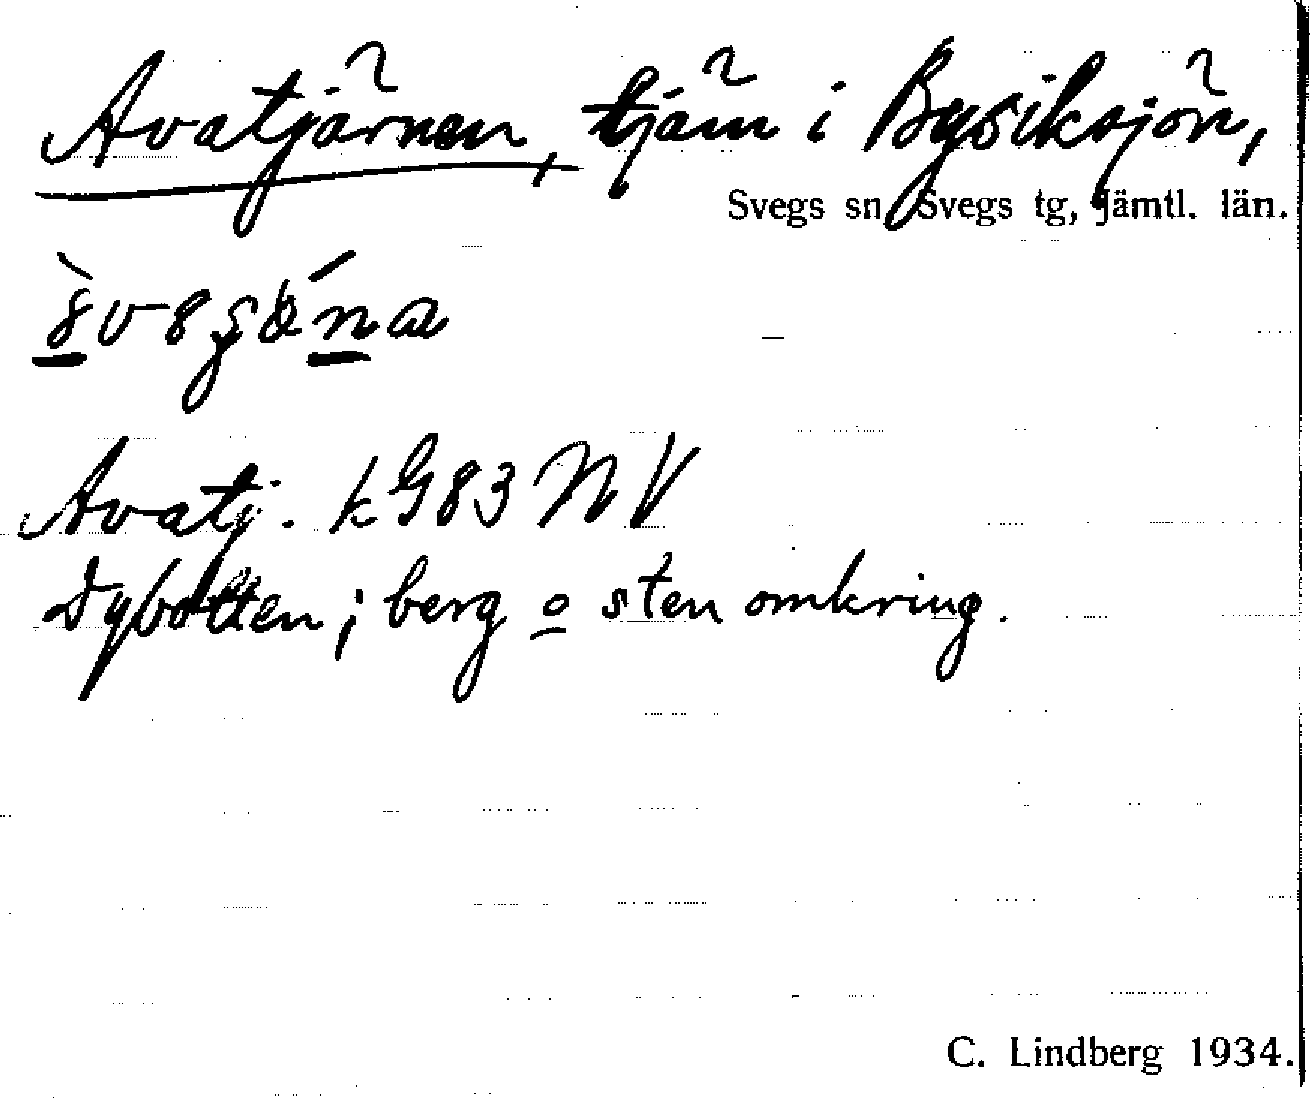 Avatjärnen, tjärn i Bysiksjön,
Svegs sn, Svegs tg, Jämtl. län.
Avatj. kG83 NV
Dybotten; berg o sten omkring.
C. Lindberg 1934.